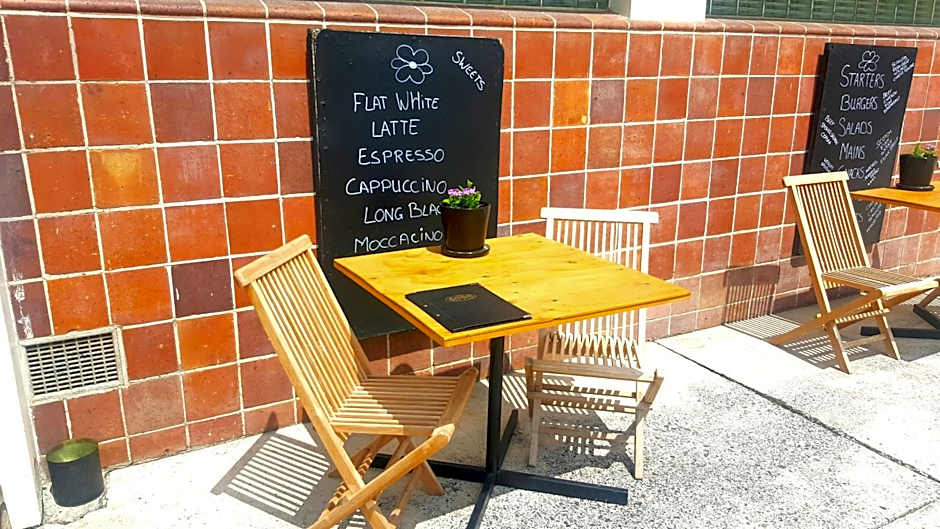 SWEETS
FLAT WHITE
LATTE
ESPRESSO
CAPPUCCINO
LONG BLAC
MOCCACINO
STARTERS
BURGERS
SALADS
MAINS
SNACKS